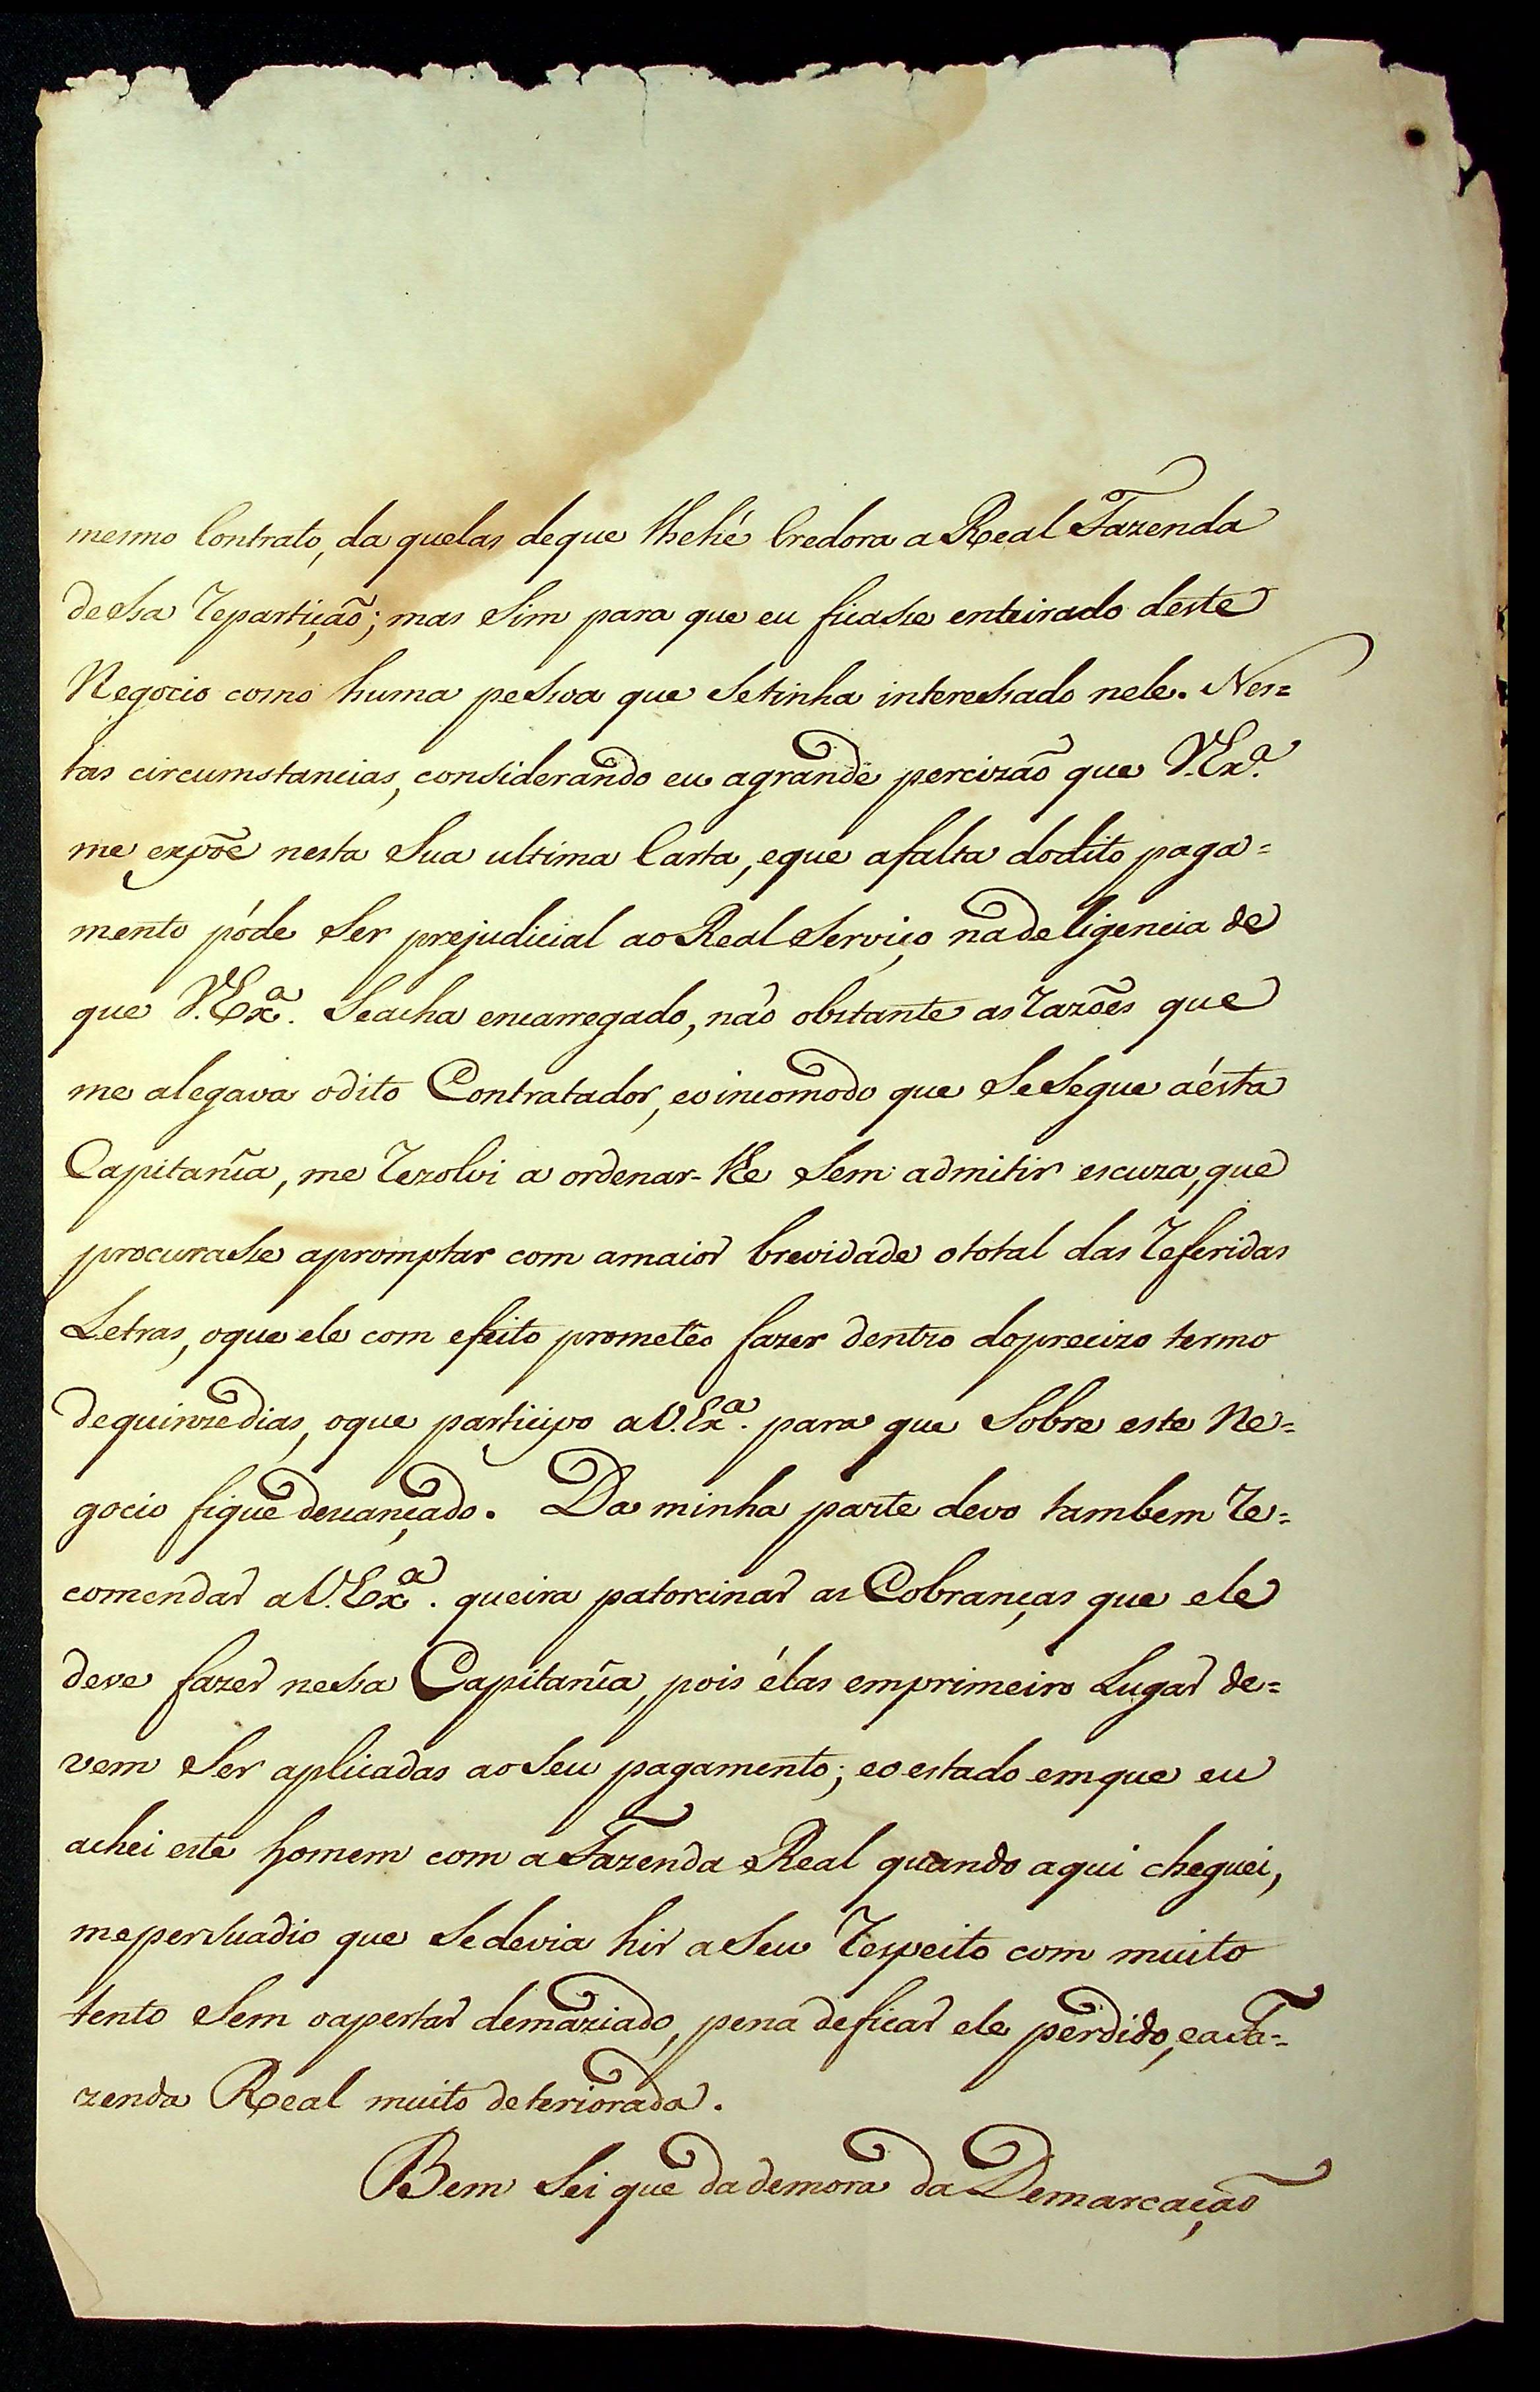 mesmo Contrato, da quelas deque lhehé Credora a Real Fazenda
dessa repartição; mas sim para que eu ficasse enteirado deste
Negocio como huma pessoa que setinha interessado nele. Nes=
tas circumstancias, considerando eu agrande percizaõ que V. Exª.
me expõe nesta sua ultima Carta, eque afalta dodito paga=
mento póde ser prejudicial ao Real serviço nadeligencia de
que V. Exª. seacha encarregado, naõ obstante as razões que
me alegava odito Contratador, eoincomodo que sesegue aésta
Capitanîa, me rezolvi a ordenar-lhe sem admitir escuza, que
procurasse apromptar com amaior brevidade ototal das referidas
Letras, oque ele com efeito prometêo fazer dentro doprecizo termo
dequinze dias, oque participo aV. Exª. para que sobre este Ne=
gocio fique descançado. Da minha parte devo tambem re=
comendar aV. Exª. queira patorcinar as Cobranças que ele
deve fazer nessa Capitanîa, pois élas emprimeiro Lugar de=
vem ser aplicadas ao seu pagamento; eoestado emque eu
achei este homem com a Fazenda Real quando aqui cheguei,
mepersuadio que sedevia hir aseu respeito com muito
tento sem oapertar demaziado, pena deficar ele perdido, eaFa=
zenda Real muito deteriorada.
Bem sei que dademora da Demarcaçaõ